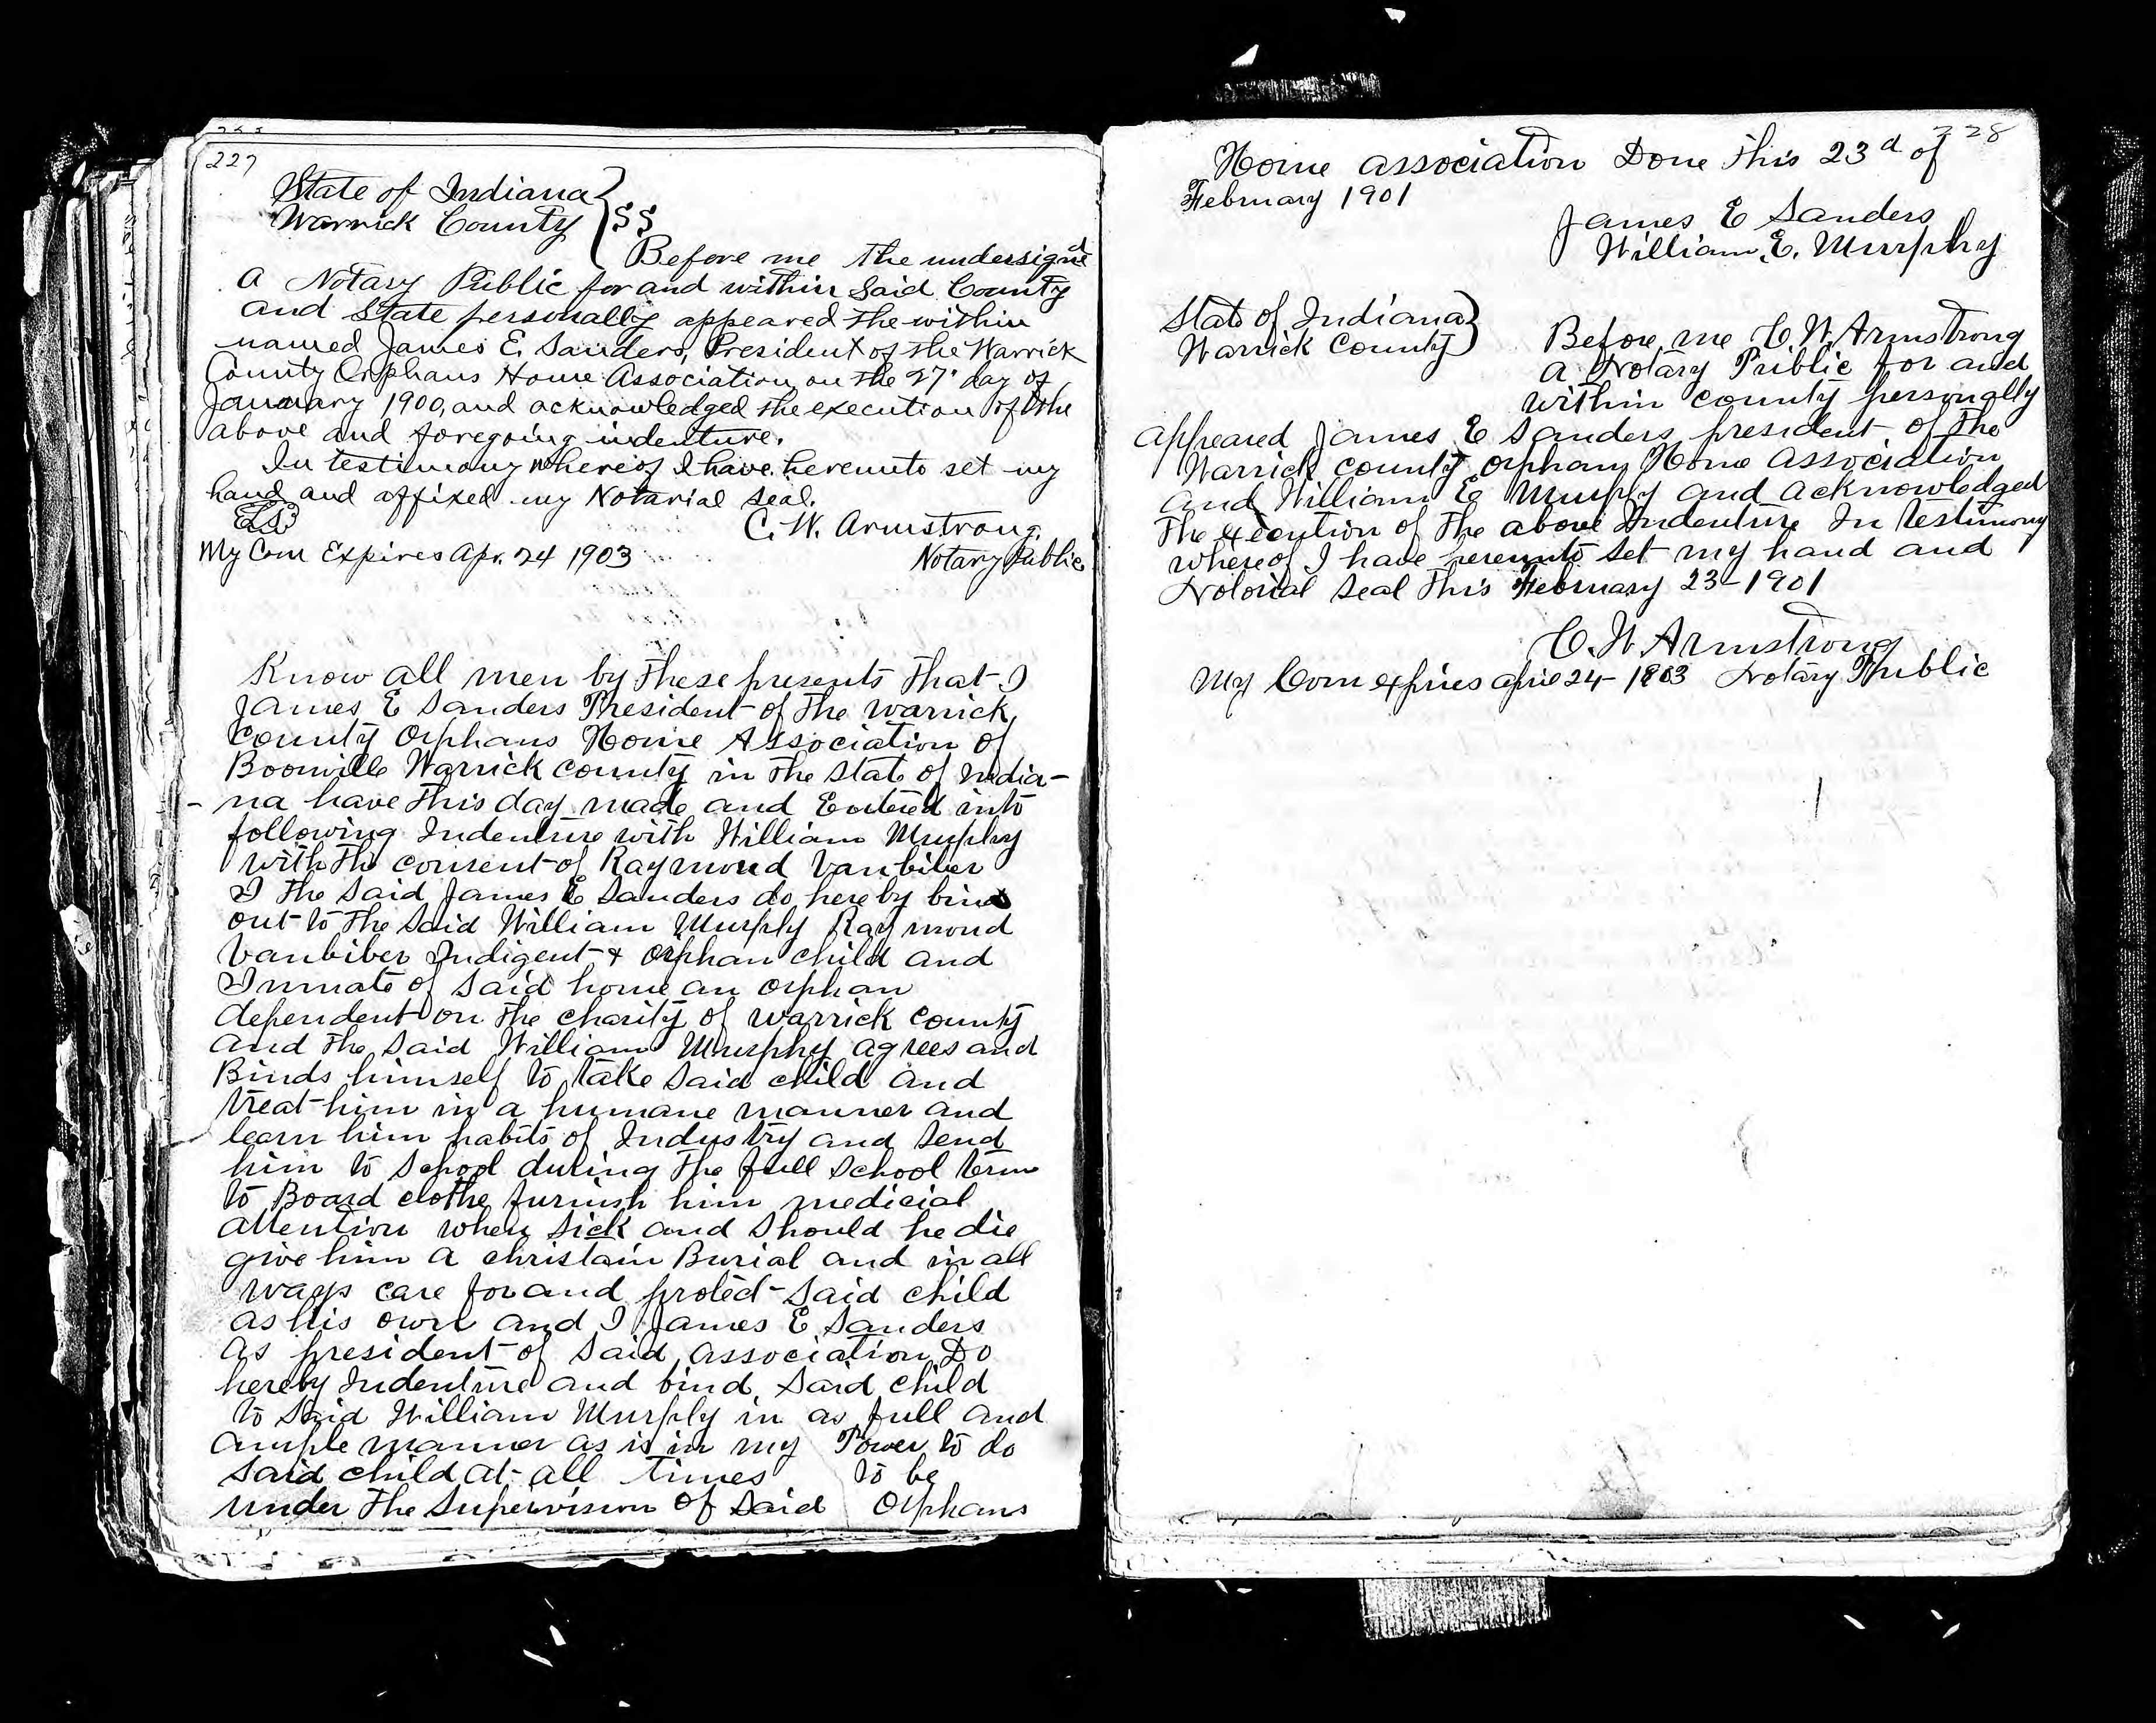 227
State of Indiana
Warrick County } SS
Before me the undersigned
a Notary Public for and within said County
and State personally appeared the within
named James E. Sanders, President of the Warrick
County Orphans Home Association, on the 27" day of
January 1900, and acknowledged the execution of the
above and foregoing indenture.
In testimony whereof I have hereunto set my
hand and affixed my Notarial seal.
C. W. Armstrong.
My Com Expires Apr. 24 1903
Notary Public
Know all men by these presents that I
James E Sanders President of the warrick
County Orphans Home Association of
Boonville Warrick county in the state of India-
-na have this day made and Entered into
following Indenture with William Murphy
with the consent of Raymond Vanbiber
I the said James E Sanders do hereby bind
out to the said William Murphy Raymond
Vanbiber Indigent & orphan child and
Inmate of said home an orphan
dependent on the charity of warrick county
and the said William Murphy agrees and
Binds himself to take said child and
treat him in a humane manner and
learn him habits of Industry and send
him to school during the full school term
to Board clothe furnish him medicial
attention when sick and should he die
give him a christain Burial and in all
ways care for and protect said child
as his own and I James E Sanders
as president of said association Do
hereby Indenture and bind said child
to said William Murphy in as full and
ample manner as is in my Power to do
said child at all times to be
under the supervision of said Orphans
228
Home association Done this 23d of
February 1901
James E Sanders
William E. Murphy
State of Indiana
Warrick County }
Before me C. W. Armstrong
a Notary Public for and
within county personally
appeared James E Sanders president of the
Warrick county orphans Home association
and William E Murphy and acknowledged
the execution of the above Indenture In testimony
whereof I have hereunto set my hand and
Notorial seal this February 23-1901
C. W. Armstrong
My Com expires aprie 24-1903 Notary Public